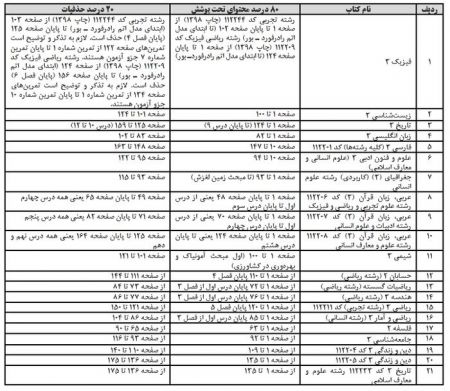 ردیف نام کتاب ۸۰ درصد محتوای تحت پوشش ۲۰ درصد حذفیات
۱ فیزیک ۳
رشته تجربی کد ۱۱۲۲۴۴ (چاپ ۱۳۹۸) از صفحه ۱ تا پایان صفحه ۱۰۳ (تا ابتدای مدل اتم رادرفورد ـ بور) رشته ریاضی فیزیک کد ۱۱۲۲۰۹ (چاپ ۱۳۹۸) از صفحه ۱ تا پایان صفحه ۱۲۴ (تا ابتدای مدل اتم رادرفورد ـ بور)
رشته تجربی کد ۱۱۲۲۴۴ (چاپ ۱۳۹۸) از صفحه ۱۰۳ (مدل اتم رادرفورد ـ بور) تا پایان صفحه ۱۲۵ (پایان فصل ۴) حذف است. لازم به تذکر و توضیح است تمرین‌های صفحه ۱۲۲ از تمرین شماره ۱ تا پایان تمرین شماره ۷ جزو آزمون هستند. رشته ریاضی فیزیک کد ۱۱۲۲۰۹ (چاپ ۱۳۹۸) از صفحه ۱۲۴ (مدل اتم رادرفورد ـ بور) تا پایان صفحه ۱۵۶ (پایان فصل ۶) حذف است. لازم به تذکر و توضیح است تمرین‌های صفحه ۱۳۴ از تمرین شماره ۱ تا پایان تمرین شماره ۱۰ جزو آزمون هستند.
۲ زیست‌شناسی ۳ صفحه ۱ تا ۱۰۰ صفحه ۱۰۱ تا ۱۲۴
۳ تاریخ ۳ صفحه ۱ تا ۱۲۴ (تا پایان درس ۹) صفحه ۱۲۵ تا ۱۵۹ (درس ۱۰ تا ۱۲)
۴ زبان انگلیسی ۳ صفحه ۱ تا ۸۲ صفحه ۸۳ تا ۱۰۲
۵ فارسی ۳ (کلیه رشته‌ها) کد ۱۱۲۲۰۱ صفحه ۱۰ تا ۱۴۷ صفحه ۱۴۸ تا ۱۶۳
۶ علوم و فنون ادبی ۳ (علوم انسانی و معارف اسلامی) صفحه ۱۰ تا ۹۴ صفحه ۹۵ تا ۱۲۲
۷ جغرافیای (۳) (کاربردی) رشته علوم انسانی صفحه ۱ تا ۹۲ (تا مبحث زمین لغزش) صفحه ۹۳ تا ۱۱۵
۸ عربی، زبان قرآن (۳) کد ۱۱۲۲۰۶ رشته علوم تجربی و ریاضی و فیزیک صفحه ۱ تا پایان صفحه ۴۸ یعنی از درس اول تا پایان درس سوم صفحه ۴۹ تا پایان صفحه ۶۵ یعنی همه درس چهارم
۹ عربی، زبان قرآن (۳) کد ۱۱۲۲۰۷ رشته ادبیات و علوم انسانی صفحه ۱ تا پایان صفحه ۷۰ یعنی از درس اول تا پایان درس چهارم صفحه ۷۱ تا پایان صفحه ۸۲ یعنی همه درس پنجم
۱۰ عربی، زبان قرآن (۳) کد ۱۱۲۲۰۸ رشته علوم و معارف انسانی صفحه ۱ تا پایان صفحه ۱۲۴ یعنی تا پایان درس هشتم صفحه ۱۲۵ تا پایان صفحه ۱۶۴ یعنی همه درس نهم و دهم
۱۱ شیمی ۳ صفحه ۱ تا ۱۰۰ (اول مبحث آمونیاک و بهره‌وری در کشاورزی) از صفحه ۱۰۱ تا ۱۲۱
۱۲ حسابان ۲ (رشته ریاضی) از صفحه ۱ تا ۱۱۰ پایان فصل ۴ از صفحه ۱۱۱ تا ۱۴۴
۱۳ ریاضیات گسسته (رشته ریاضی) از صفحه ۱ تا ۷۲ پایان درس اول از فصل ۳ از صفحه ۷۳ تا ۸۴
۱۴ هندسه ۳ (رشته ریاضی) از صفحه ۱ تا ۷۶ پایان درس اول از فصل ۳ از صفحه ۷۷ تا ۸۶
۱۵ ریاضی ۳ (رشته تجربی) کد ۱۱۲۲۱۱ از صفحه ۱ تا ۱۲۰ پایان فصل ۵ از صفحه ۱۲۱ تا ۱۵۰
۱۶ ریاضی و آمار ۳ (رشته انسانی) از صفحه ۱ تا ۸۵ پایان درس اول از فصل ۳ از صفحه ۸۶ تا ۱۰۴
۱۷ فلسفه ۲ از صفحه ۱ تا ۶۴ از صفحه ۶۵ تا ۹۰
۱۸ جامعه‌شناسی ۳ از صفحه ۱ تا ۹۲ از صفحه ۹۳ تا ۱۱۶
۱۹ دین و زندگی ۳ کد ۱۱۲۲۰۴ از صفحه ۱ تا ۱۰۹ از صفحه ۱۱۰ تا ۱۴۰
۲۰ دین و زندگی ۳ کد ۱۱۲۲۰۵ از صفحه ۱ تا ۱۳۵ از صفحه ۱۳۶ تا ۱۷۵
۲۱ تاریخ ۳ کد ۱۱۲۲۳۲ رشته علوم و معارف انسانی از صفحه ۱ تا ۱۳۵ از صفحه ۱۳۶ تا ۱۷۵